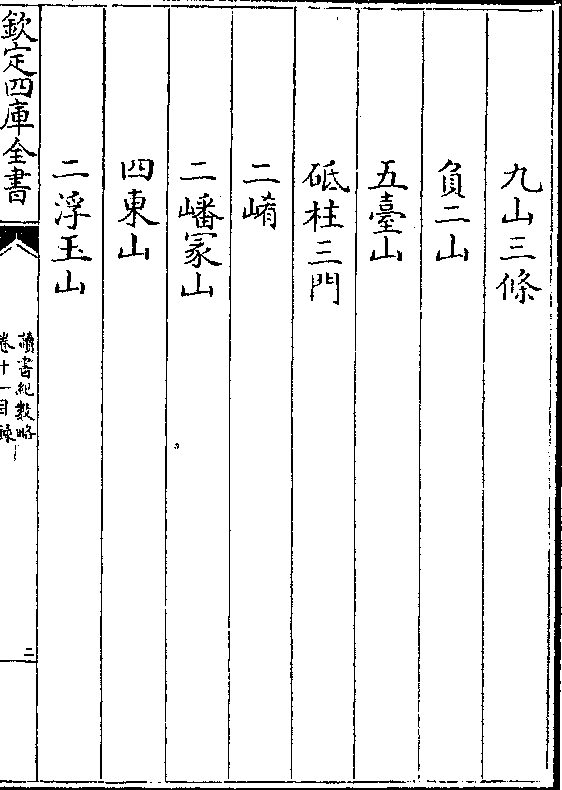 九山三條
負二山
五臺山
砥柱三門
二崤
二嶓冢山
四東山
二浮玉山
欽定四庫全書
讀書紀數略
卷十一目録
二